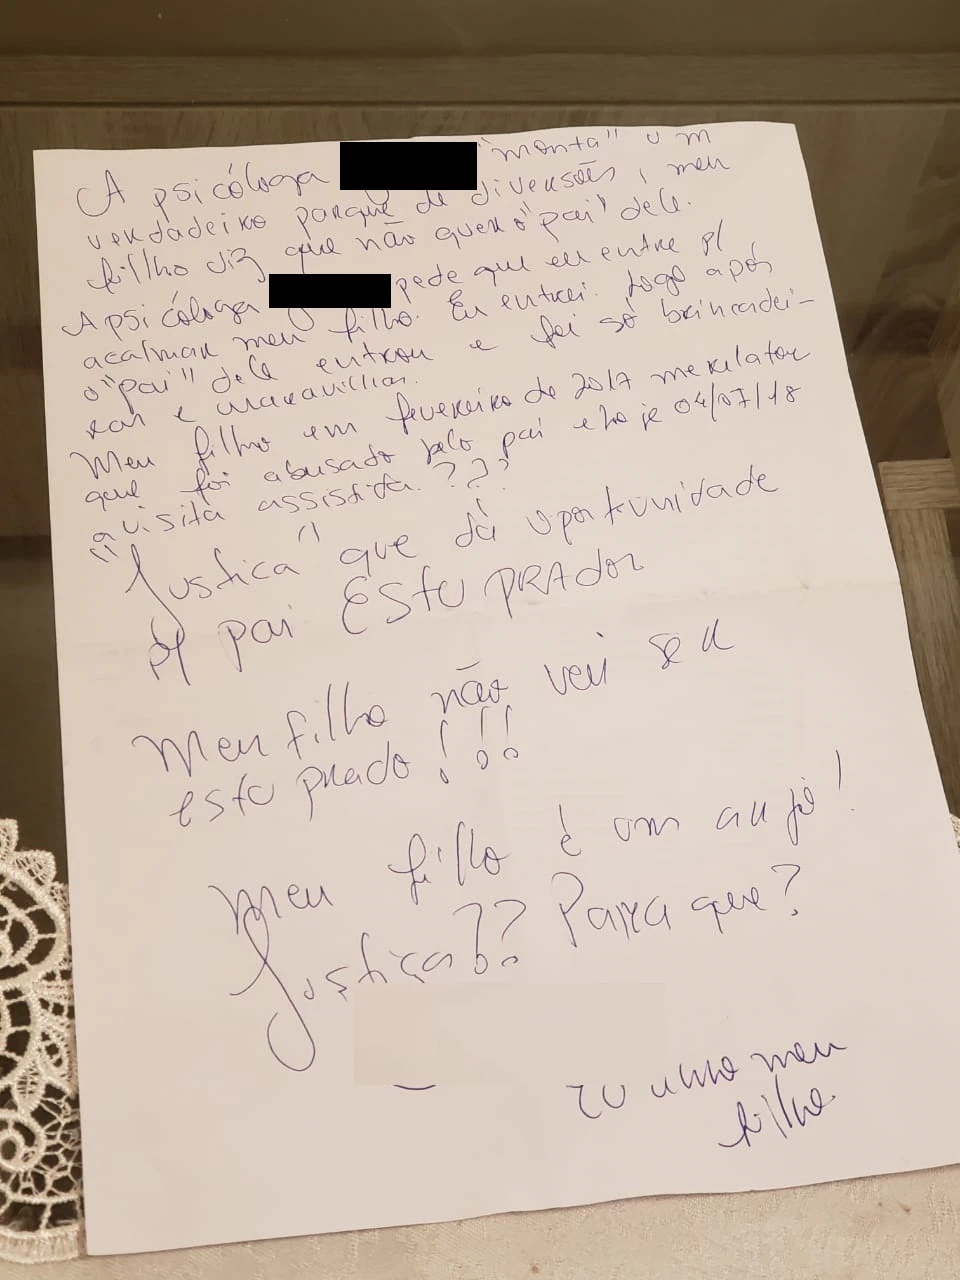 A psicóloga "monta" um
verdadeiro parque de diversões, meu
filho diz que não quer o "pai" dele.
A psicóloga pede que eu entre p/
acalmar meu filho. Eu entrei. Logo após
o "pai" dele entrou e foi só brincadei-
ras e maravilhas.
Meu filho em fevereiro de 2017 me relatou
que foi abusado pelo pai e hoje 04/07/18
a visita assistida???
"Justiça" que dá oportunidade
p/ pai EStUPRAdor
Meu filho não vei ser
estuprado!!!
Meu filho é um anjo!
Justiça?? Para que?
meu
filho